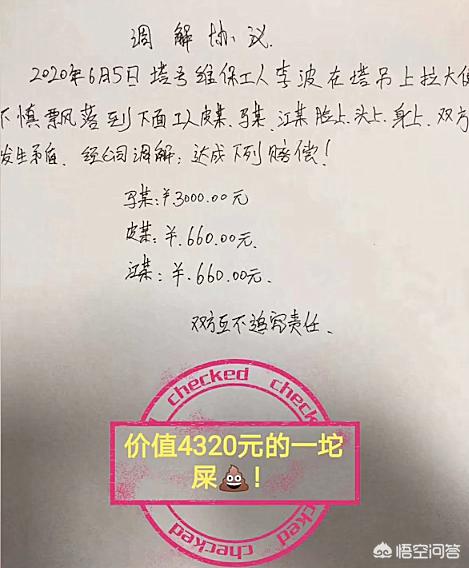 调解协议
2020年6月5日塔号维保工人李波在塔吊上拉大便
不慎飘落到下面工人皮某、孑某、江某脸上、头上、身上、双方
发生矛盾。经公司调解,达成下列赔偿!
孑某:¥3000.00元
皮某:¥.660.00元.
江某:¥.660.00元.
双方互不追究责任.
checked
价值4320元的一坨
屎💩!
checked
悟空问答